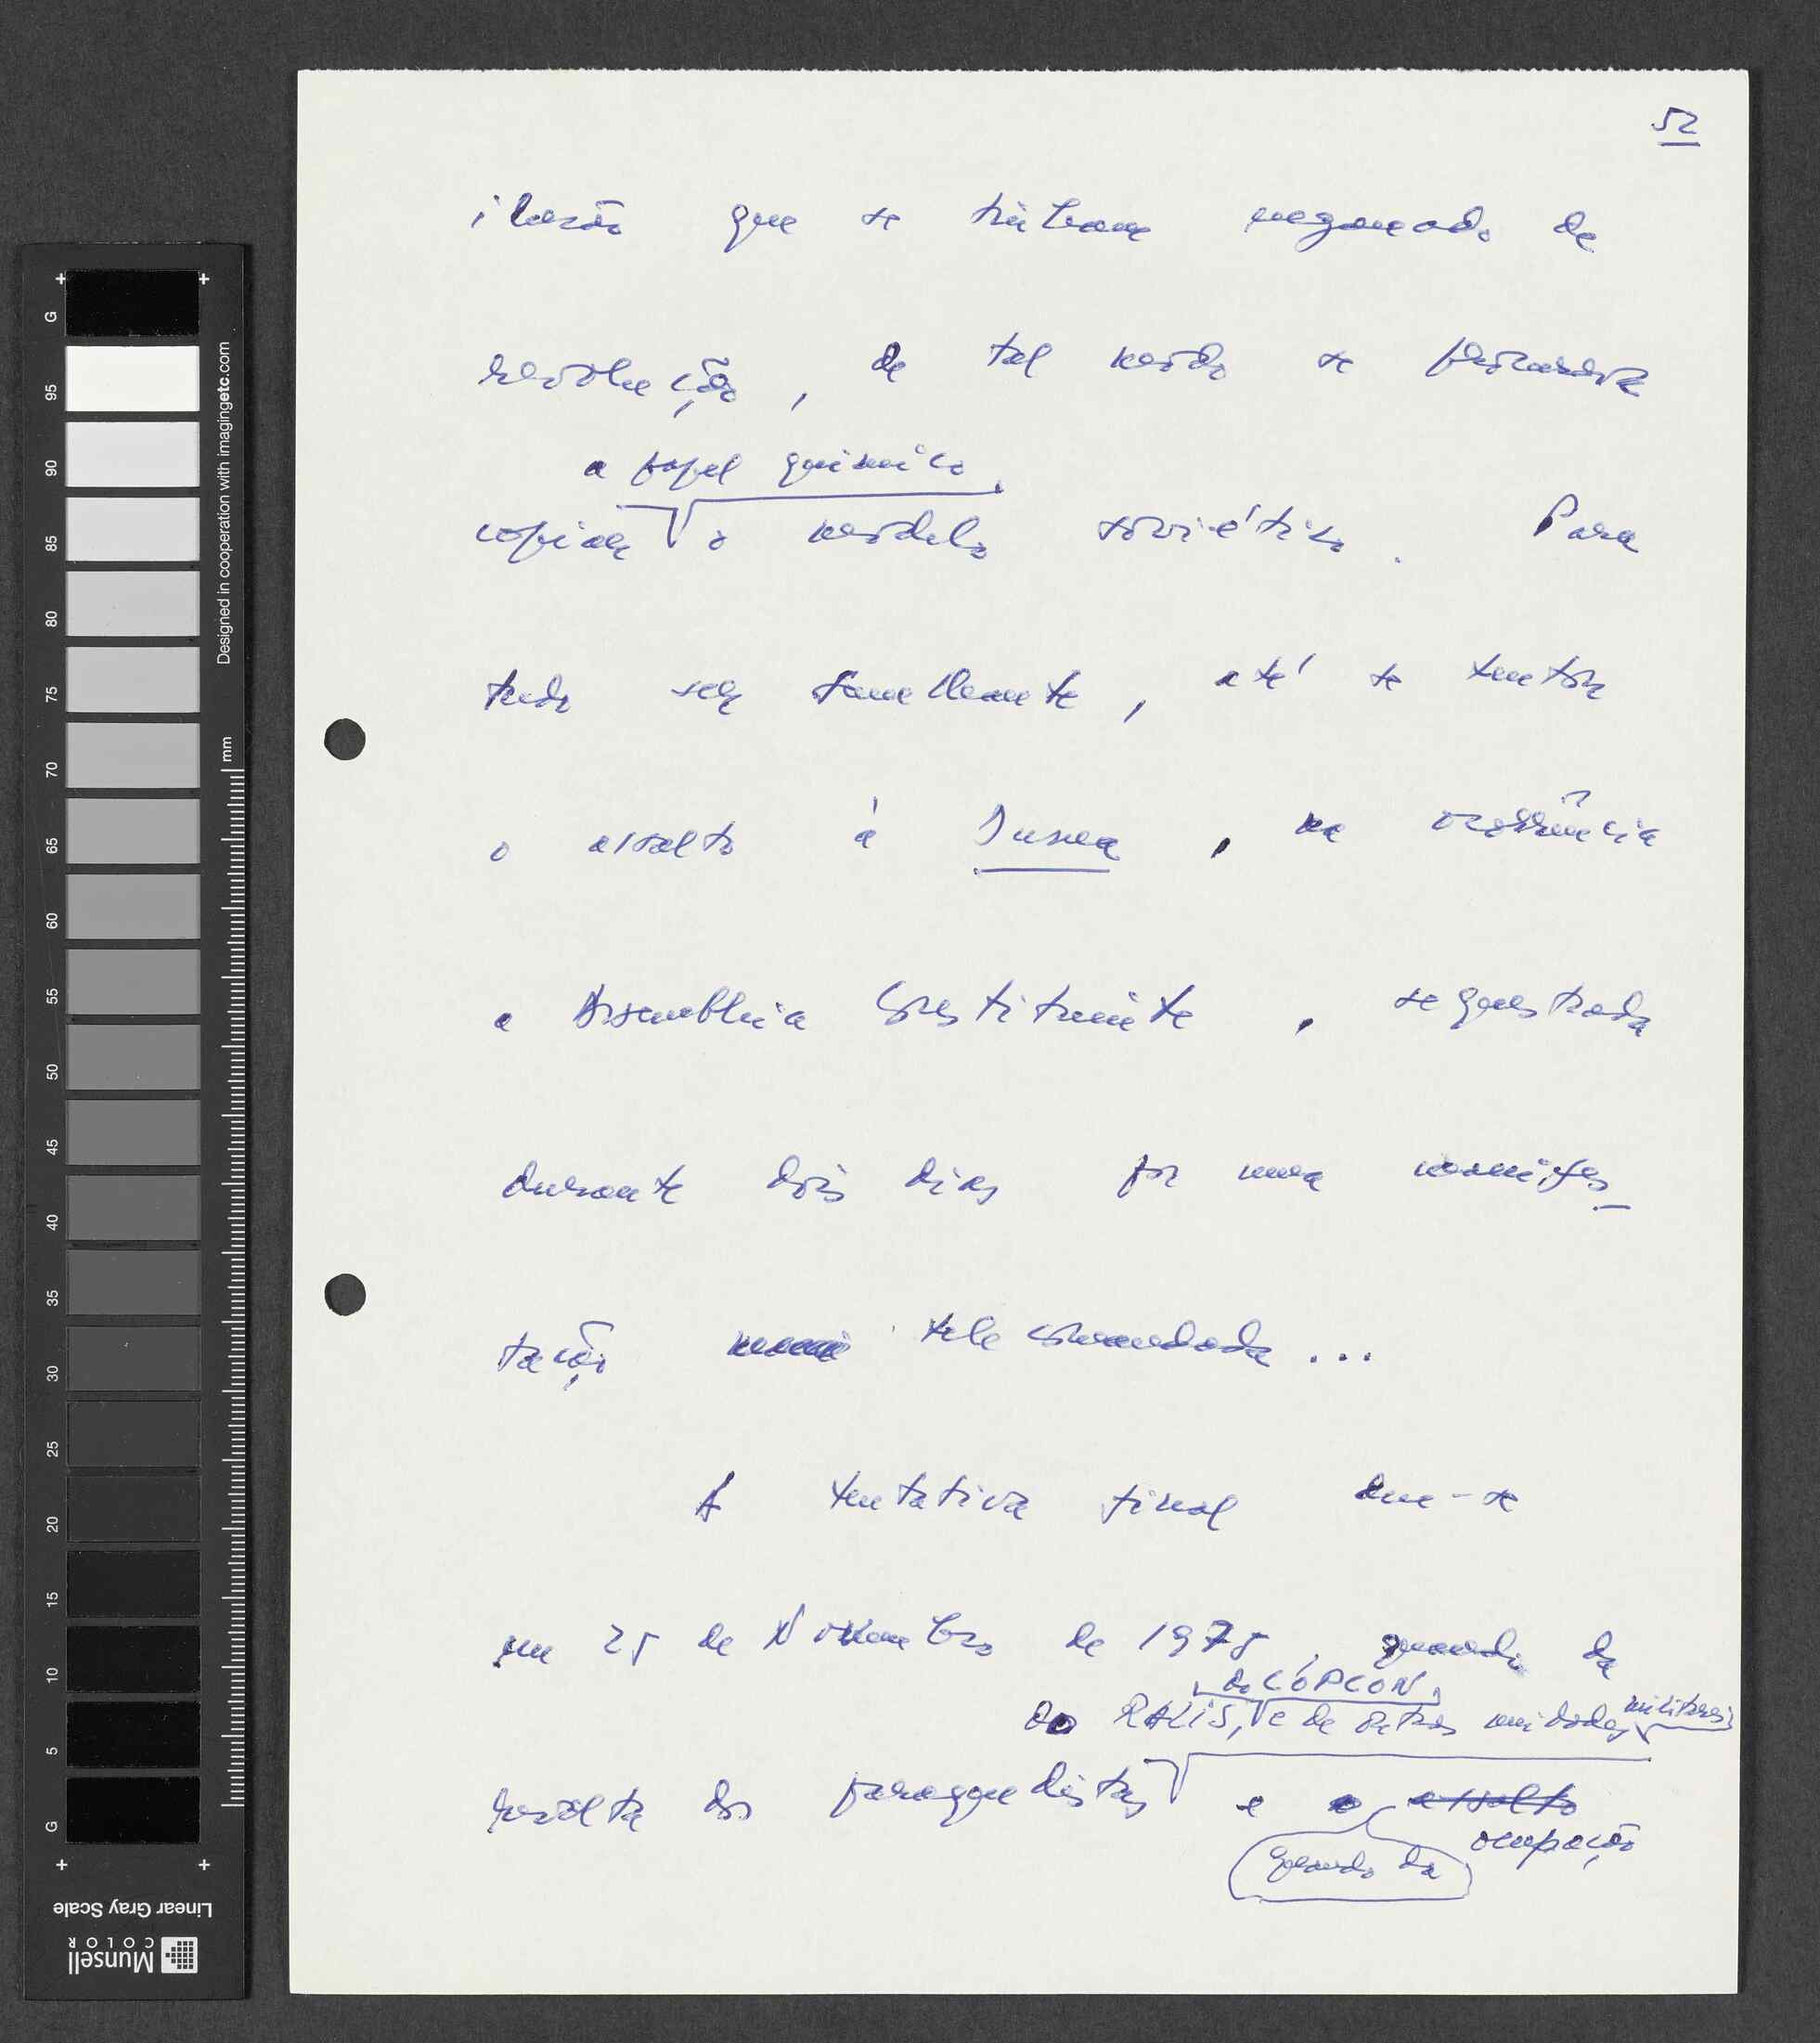 52
ilusão que se tinham enganado de
revolução, de tal modo se procurava
a papel químico,
copiar o modelo soviético. Para
tudo ser semelhante, até se tentou
o assalto à Duma, na ocorrência
a Assembleia Constituinte, sequestrada
durante dois dias por uma manifes-
tação telecomandada...
A tentativa final deu-se
em 25 de Novembro de 1975, quando da
do COPCON,
do RALIS, e de outras unidades militares
revolta dos paraquedistas e o assalto
ocupação
quando da
+ +
G 95 90 85 80 75 70 65 60 55 50 45 40 35 30 25 20 15 10 5 G
mm
Designed in cooperation with imagingetc.com
+ +
Linear Gray Scale
Munsell
COLOR